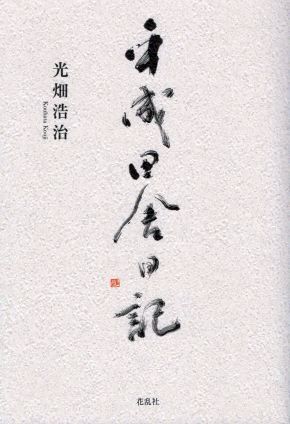 平成田舎日記
光畑浩治
Kouhata Kouji
花乱社